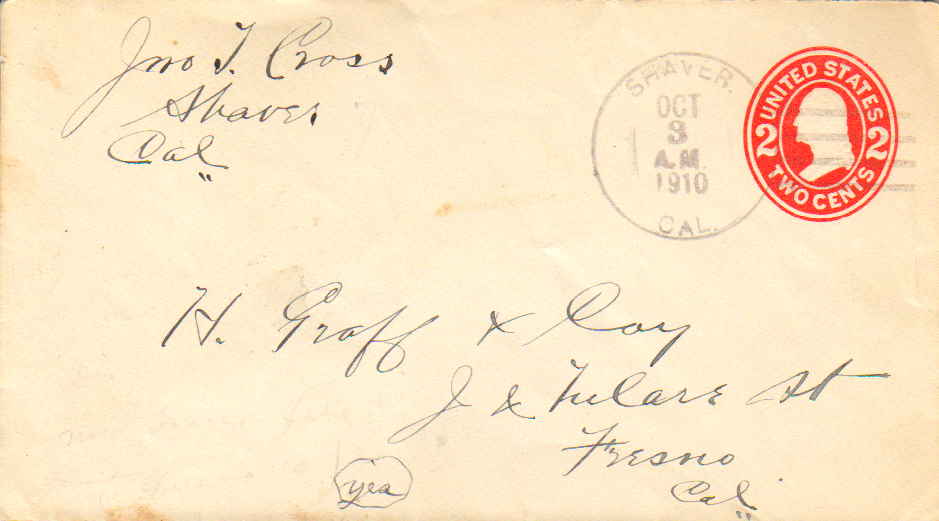 Jno T. Cross
Shaver
Cal
SHAVER.
OCT
3
A.M.
1910
CAL.
UNITED STATES
2 2
TWO CENTS
H. Graff & Coy
J & Tulare St
Fresno
Cal
yea